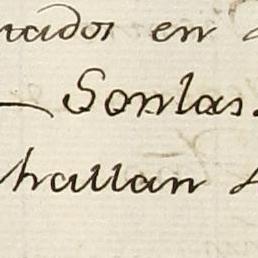 tados en
Son las
hallan